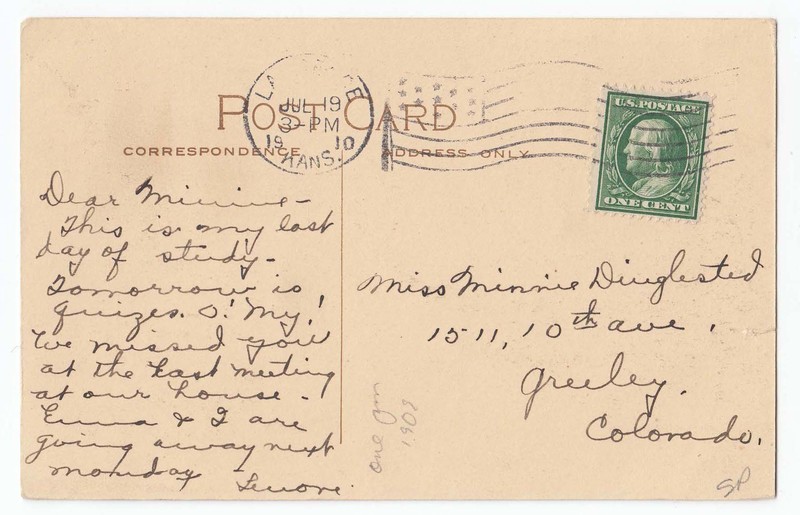 POST CARD
JUL 19
3-PM
19 10
KANS.
U.S. POSTAGE
ONE CENT
CORRESPONDENCE
ADDRESS ONLY
Dear Minnie -
This is my last
day of study -
Tomorrow is
quizes. O! My!
We missed you
at the last meeting
at our house -
Emma & I are
going away next
monday
Lenore.
Miss Minnie Dinglested
1511, 10th ave,
Greeley,
Colorado.
1908